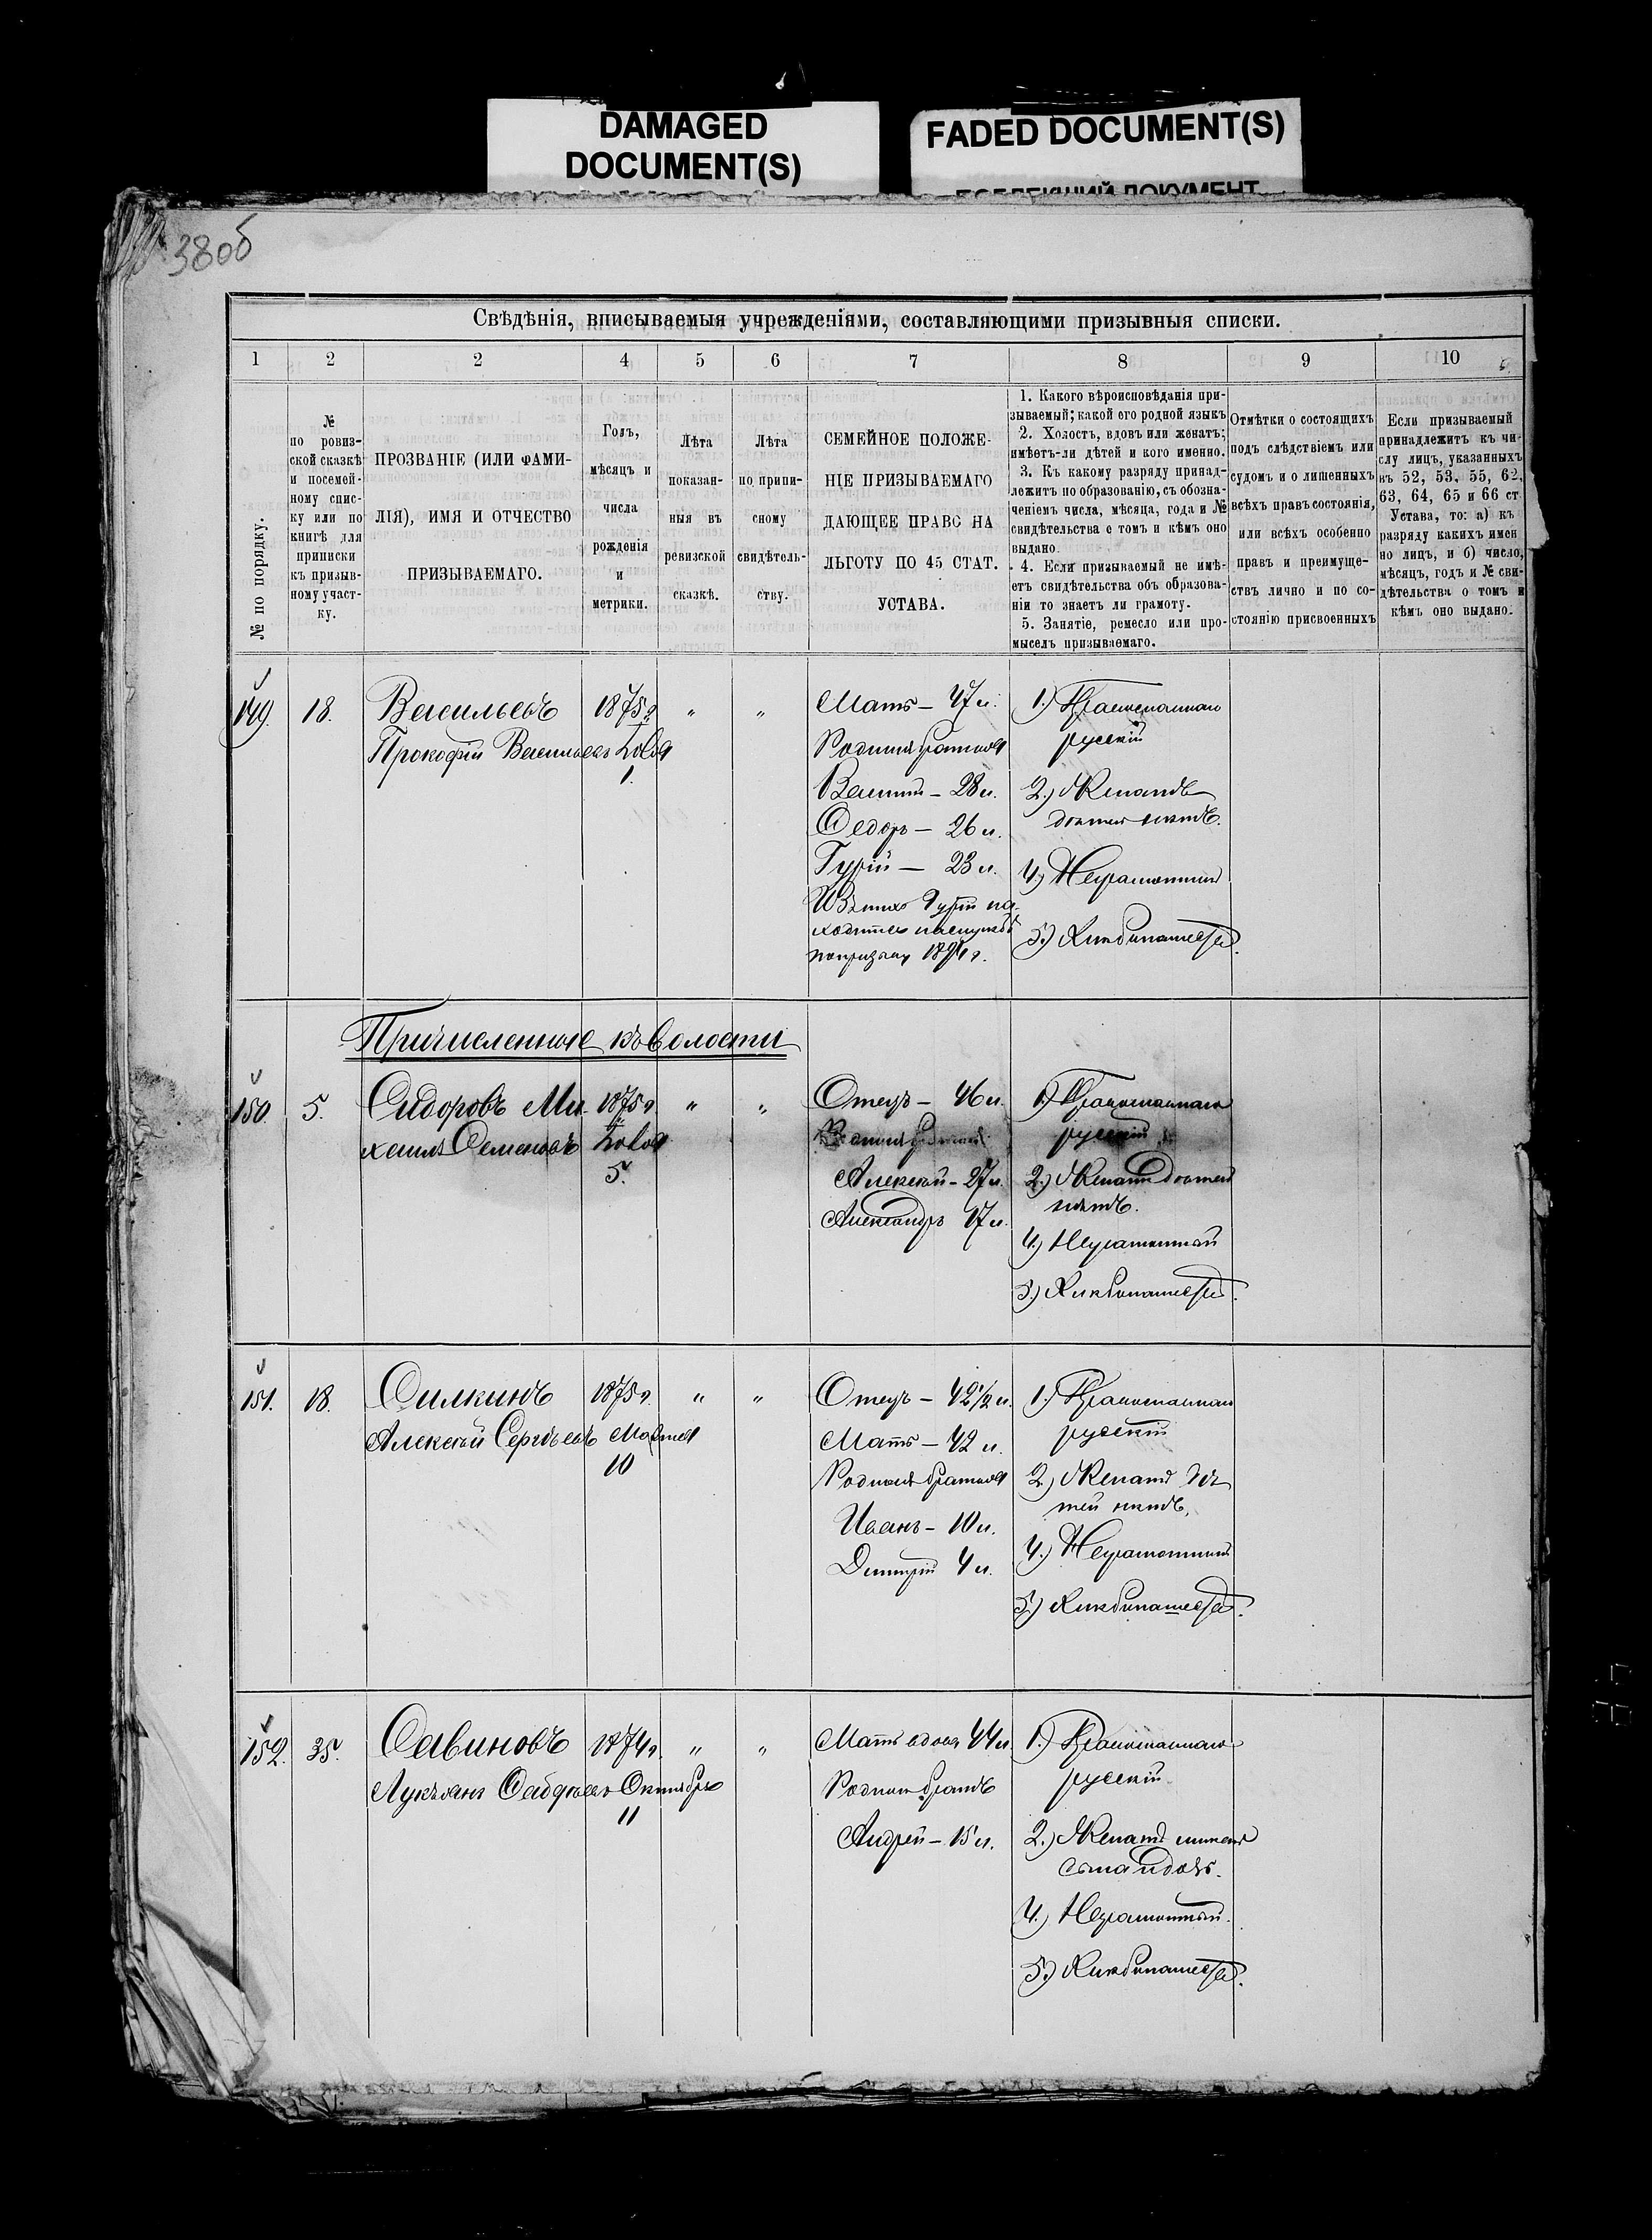 DAMAGED
DOCUMENT(S)
FADED DOCUMENT(S)
38об
Свѣдѣнія, вписываемыя учрежденіями, составляющими призывныя списки.
1 2 2 4 5 6 7 8 9 10
№ по порядку.
№
по ровиз-
ской сказкѣ
и посемей-
ному спис-
ку или по
книгѣ для
приписки
къ призыв-
ному участ-
ку.
ПРОЗВАНІЕ (ИЛИ ФАМИ-
ЛІЯ), ИМЯ И ОТЧЕСТВО
ПРИЗЫВАЕМАГО.
Годъ,
мѣсяцъ и
числа
рожденія
и
метрики.
Лѣта
показан-
ныя въ
ревизской
сказкѣ.
Лѣта
по припи-
сному
свидѣтель-
ству.
СЕМЕЙНОЕ ПОЛОЖЕ-
НІЕ ПРИЗЫВАЕМАГО
ДАЮЩЕЕ ПРАВО НА
ЛЬГОТУ ПО 45 СТАТ.
УСТАВА.
1. Какого вѣроисповѣданія при-
зываемый; какой его родной языкъ
2. Холостъ, вдовъ или женатъ;
имѣетъ-ли дѣтей и кого именно.
3. Къ какому разряду принад-
лежитъ по образованію, съ обозна-
ченіемъ числа, мѣсяца, года и №
свидѣтельства о томъ и кѣмъ оно
выдано.
4. Если призываемый не имѣ-
етъ свидѣтельства объ образова-
ніи то знаетъ ли грамоту.
5. Занятіе, ремесло или про-
мыселъ призываемаго.
Отмѣтки о состоящихъ
подъ слѣдствіемъ или
судомъ и о лишенныхъ
всѣхъ правъ состоянія,
или всѣхъ особенно
правъ и преимуще-
ствъ лично и по со-
стоянію присвоенныхъ
Если призываемый
принадлежитъ къ чи-
слу лицъ, указанныхъ
въ 52, 53, 55, 62,
63, 64, 65 и 66 ст
Устава, то: а) къ
разряду какихъ имен
но лицъ, и б) число,
мѣсяцъ, годъ и № сви-
дѣтельства о томъ и
кѣмъ оно выдано.
149. 18. Васильевъ 1875 г. " "
Прокофій Васильевъ Іюля
1.
Мать – 47 л.
Родныя братья
Василій – 28 л.
Федоръ – 26 л.
Гурій – 23 л.
Изъ нихъ Гурій на-
ходится на службѣ
по призыву 1894 г.
1.) Православнаго
русскій
2.) Женатъ
дѣтей нѣтъ.
4.) Неграмотный
5.) Хлѣбопашество.
Причисленные къ волости
150. 5. Сидоровъ Ми- 1875 г. " "
хаилъ Семеновъ Іюля
5.
Отецъ – 46 л.
Алексѣй – 27 л.
Александръ 17 л.
1.) Православнаго
русскій
2.) Женатъ дѣтей
нѣтъ.
4.) Неграмотный
5.) Хлѣбопашество.
151. 18. Силкинъ 1875 г. " "
Алексѣй Сергѣевъ Марта
10
Отецъ – 42 1/2 л.
Мать – 42 л.
Родныя братья
Иванъ – 10 л.
Дмитрій 4 л.
1.) Православнаго
русскій
2.) Женатъ дѣ-
тей нѣтъ.
4.) Неграмотный
5.) Хлѣбопашество.
152. 35. Савиновъ 1874 г. " "
Лукьянъ Октября
11
Мать вдова 44 л.
Родной братъ
Андрей – 15 л.
1.) Православнаго
русскій
2.) Женатъ имѣетъ
4.) Неграмотный.
5.) Хлѣбопашество.